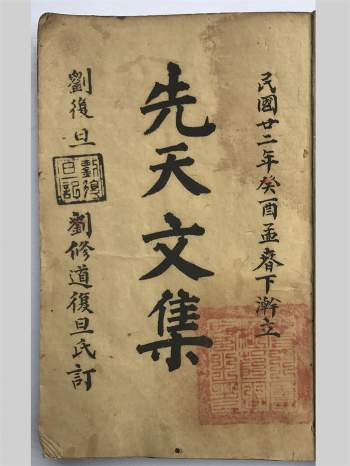 民國廿二年癸酉孟春下澣立
先天文集
劉復旦
劉復旦記
劉修道復旦氏訂